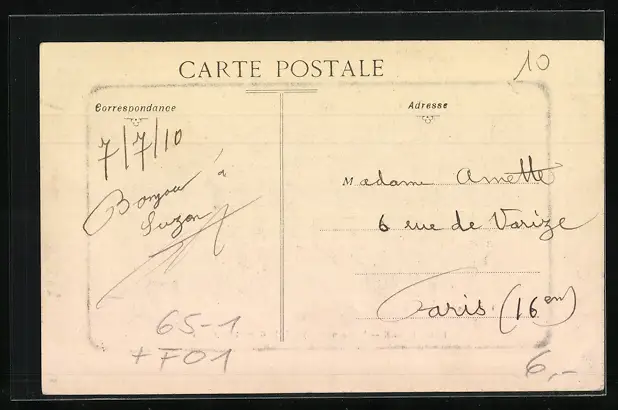 CARTE POSTALE
10
Correspondance
Adresse
7/7/10
Bonjour à
Suzon
Madame Amette
6 rue de Varize
Paris (16em)
65-1
+F01
6,-